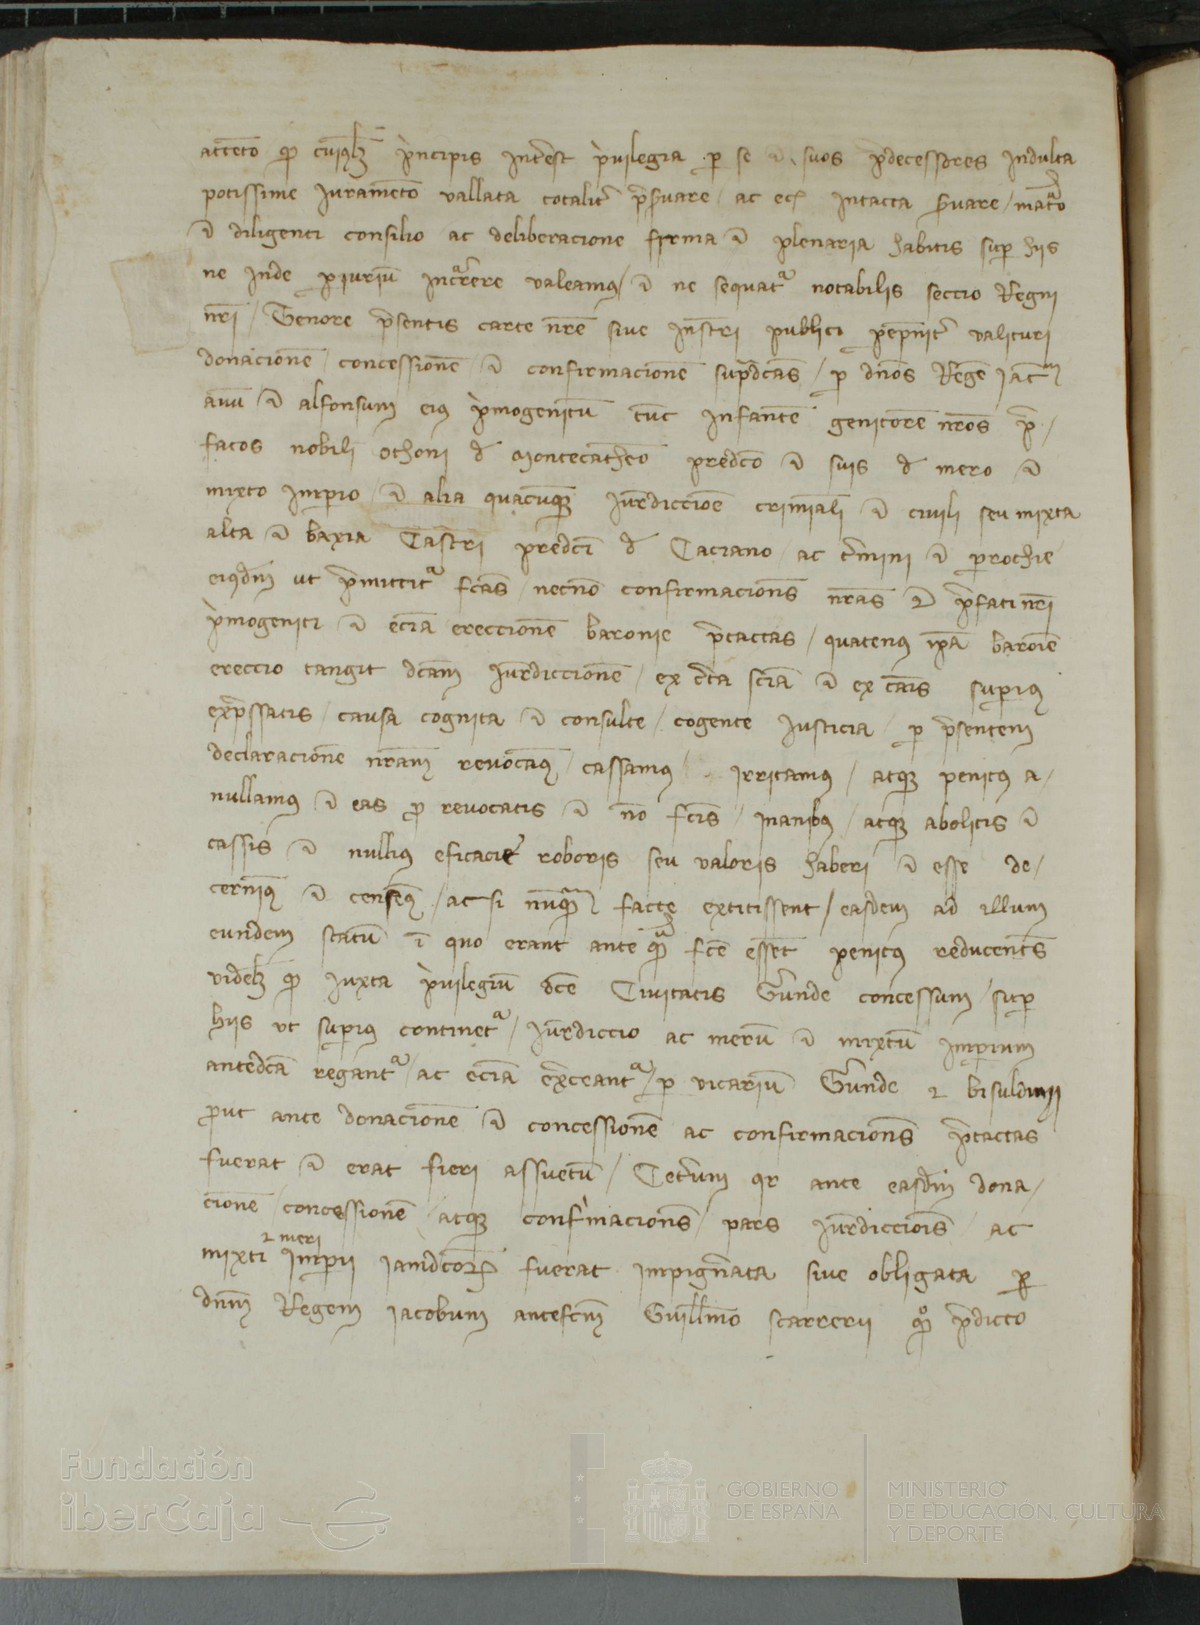 attento ꝙ cuiuslibet principis interest privilegia per se et suos predecessores indulta
potissime Iuramento vallata totaliter preservare / ac eciam intacta servare / maturo
et diligenti consilio ac deliberacione firma et plenaria habitis super hiis
ne inde periurium incurrere valeamus / et ne sequatur notabilis seccio Regni
nostri / Tenore presentis carte nostre sive Instrumenti publici perpetuo valituri
donacionem / concessionem / et confirmacionem supradictas / per dominos Regem Iacobum
avum et alfonsum eius primogenitum tunc Infantem genitorem nostros pre /
fatos nobili othoni de Montecatheno predicto et suis de mero et
mixto Imperio / et alia quacumque Iurdiccione criminali et civili seu mixta
alta et baxia Castri predicti de Caciano / ac termini et perrochie
eiusdem ut premittitur factas / necnon confirmaciones nostras et prefati nostri
primogeniti et eciam ereccionem baronie pretactas / quatenus ipsa baronie
ereccio tangit dictam Iurdiccionem / ex certa sciencia et ex causis superius
expressatis / causa cognita et consulte / cogente Iusticia / per presentem
declaracionem nostram revocamus / cassamus / irritamus / atque penitus a /
nullamus et eas pro revocatis et non factis / inanibus / atque abolitis et
cassis et nullius eficacie roboris seu valoris haberi et esse de /
cernimus et censemus / ac si nunquam facte extitissent / easdem ad illum
eundem statum in quo erant ante quam facte essent penitus reducentes
videlicet ꝙ Iuxta privilegium dicte Civitatis Gerunde concessum / super
hiis ut superius continetur / Iurdiccio ac merum et mixtum Imperium
antedicta regantur / ac eciam exerceantur / per vicarium Gerunde et bisuldunii
prout ante donacionem et concessionem ac confirmaciones pretactas
fuerat et erat fieri assuetum / Ceterum quia ante easdem dona /
cionem / concessionem / atque confirmaciones / pars Iurdiccionis / ac
et meri
mixti Imperii iamdictorum fuerat impignerata sive obligata per
dominum Regem Iacobum antefactum Guillelmo scarrerii quondam predicto
Fundación
iberCaja
GOBIERNO
DE ESPAÑA
MINISTERIO
DE EDUCACIÓN, CULTURA
Y DEPORTE